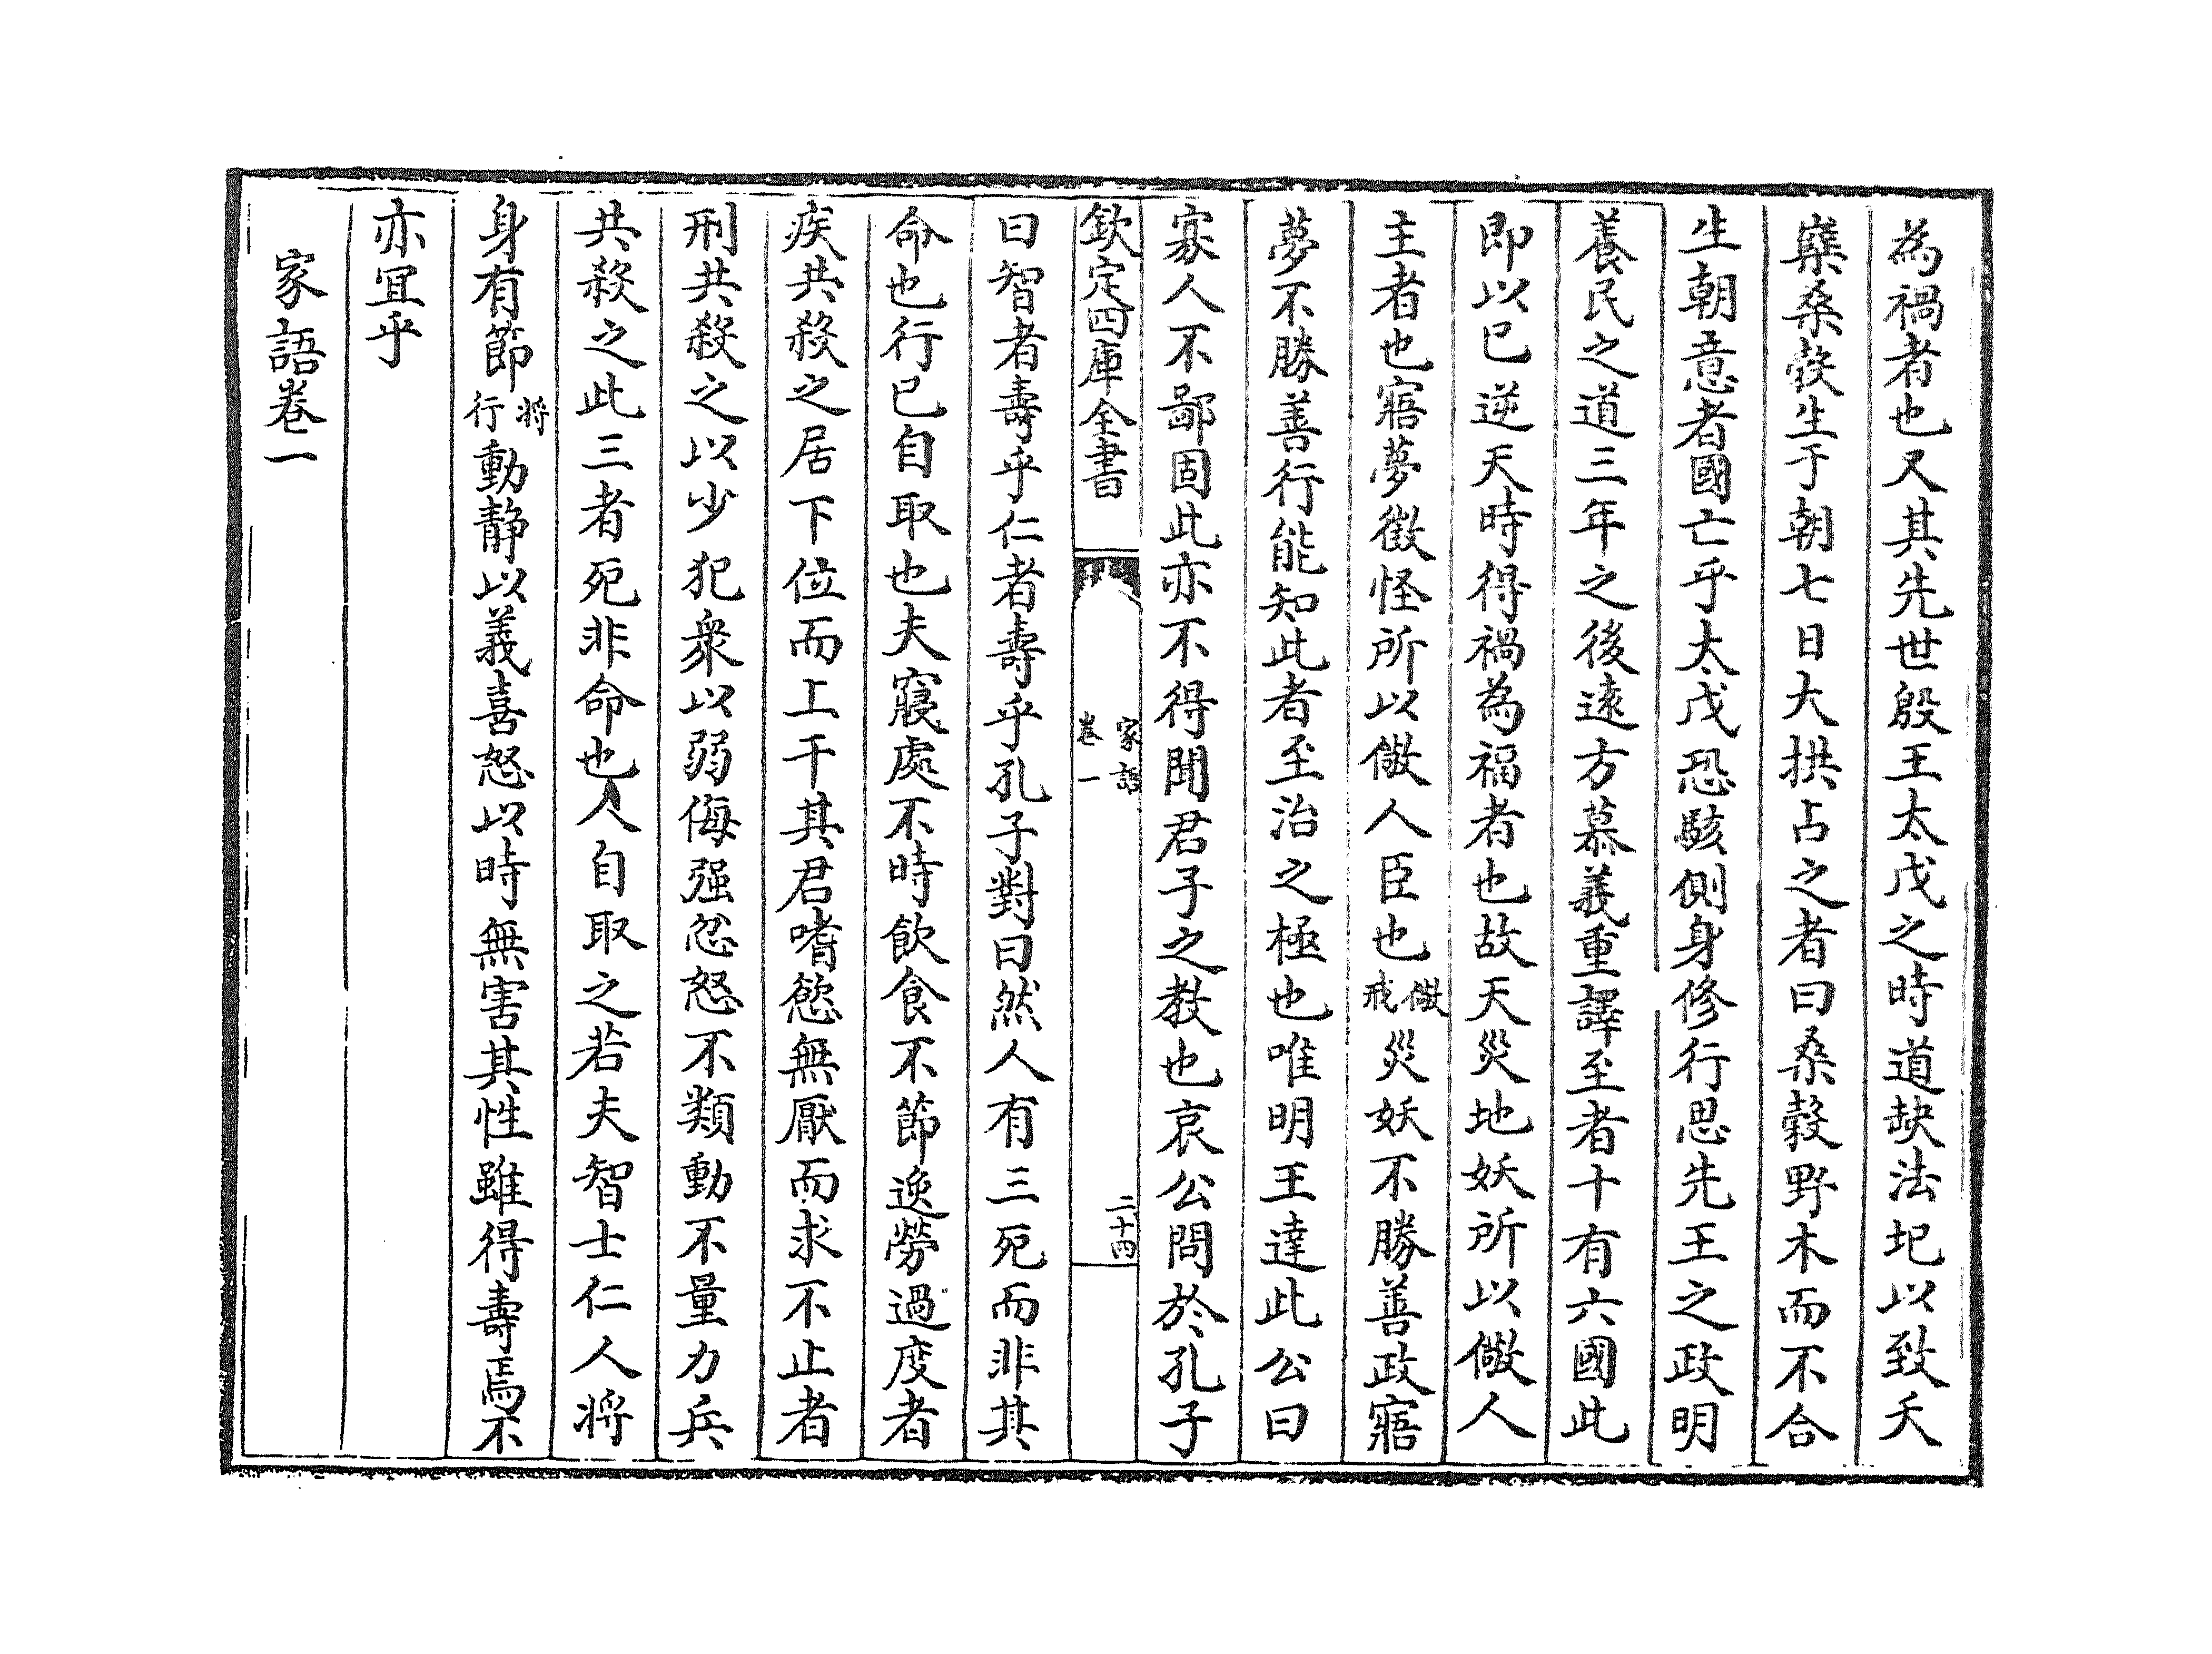 為禍者也又其先世殷王太戊之時道缺法圮以致夭
櫱桑穀生于朝七日大拱占之者曰桑穀野木而不合
生朝意者國亡乎太戊恐駭側身修行思先王之政明
養民之道三年之後逺方慕義重譯至者十有六國此
即以已逆天時得禍為福者也故天災地妖所以儆人
主者也寤夢徵怪所以儆人臣也儆戒災妖不勝善政寤
夢不勝善行能知此者至治之極也唯明王達此公曰
寡人不鄙固此亦不得聞君子之教也哀公問於孔子
欽定四庫全書
家語
卷一
二十四
曰智者壽乎仁者壽乎孔子對曰然人有三死而非其
命也行已自取也夫寢處不時飲食不節逸勞過度者
疾共殺之居下位而上干其君嗜慾無厭而求不止者
刑共殺之以少犯衆以弱侮强忿怒不類動不量力兵
共殺之此三者死非命也人自取之若夫智士仁人將
身有節將行動静以義喜怒以時無害其性雖得壽焉不
亦宜乎
家語卷一